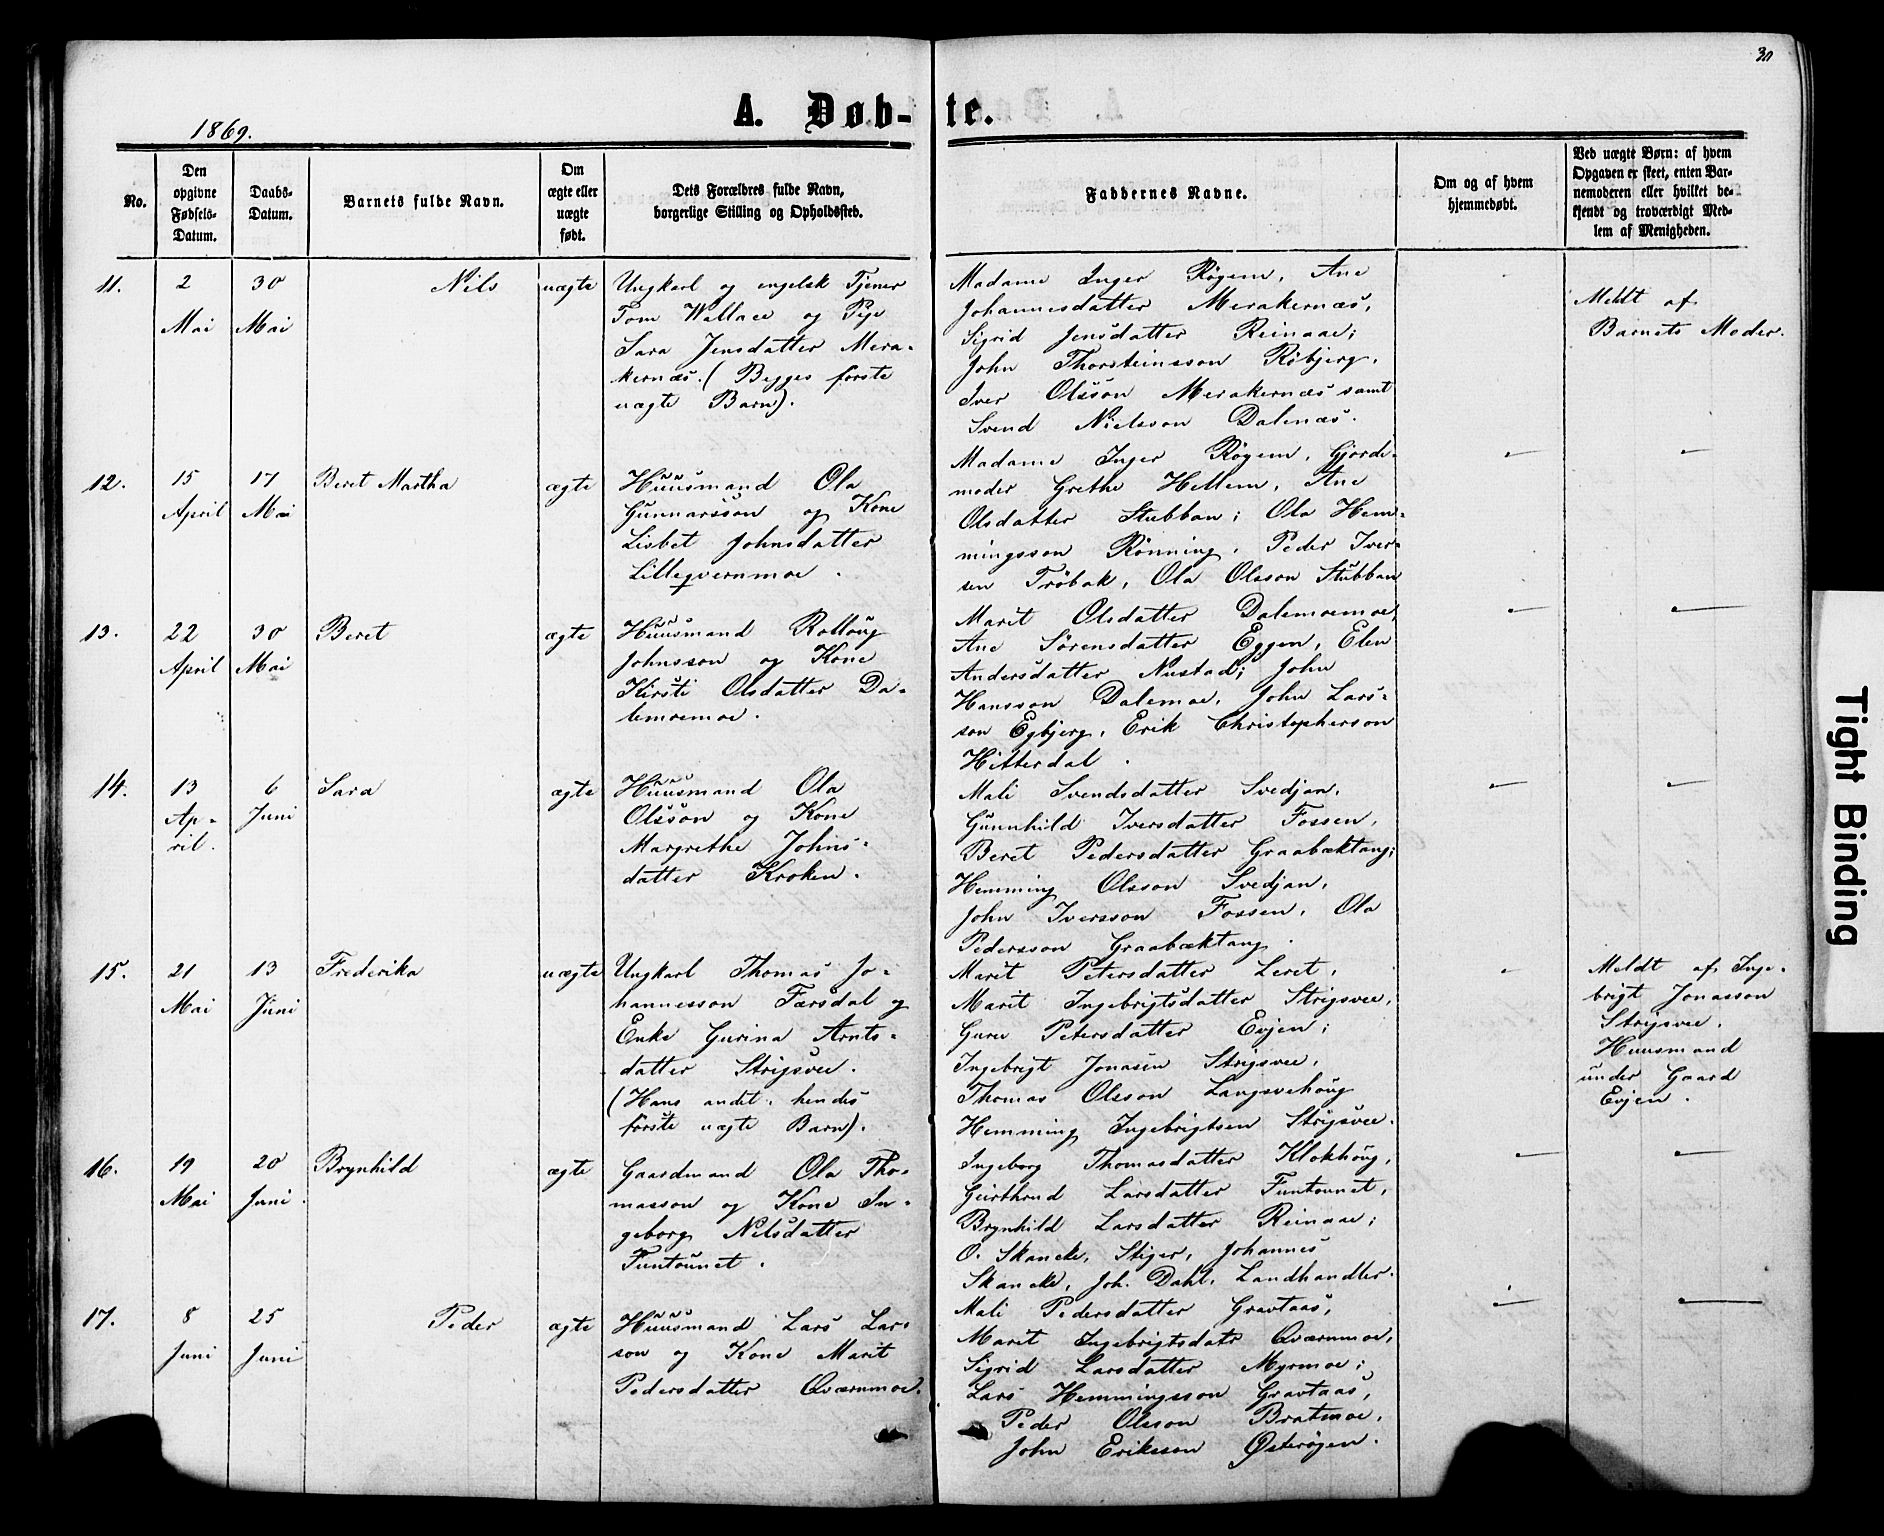 30
1869.
A. Døb-te.
No.
Den opgivne Fødsels-Datum.
Daabs-Datum.
Barnets fulde Navn.
Om ægte eller uægte født.
Dets Forældres fulde Navn, borgerlige Stilling og Opholdssted.
Faddernes Navne.
Om og af hvem hjemmedøbt.
Ved uægte Børn: af hvem Opgaven er skeet, enten Barnemoderen eller hvilket bekjendt og troværdigt Medlem af Menigheden.
11.
2 Mai
30 Mai
Nils
uægte
Ungkarl og engelsk Tjener
Tom Wallace og Pige
Sara Jensdatter Mera-
kernæs. (Begges første
uægte Barn).
Madame Inger Røgem, Ane
Johannesdatter Merakernæs,
Sigrid Jensdatter Reinaae;
John Thorsteinsson Røbjerg,
Iver Olsson Merakernæs samt
Svend Nielsson Dalenæs.
Meldt af
Barnets Moder.
12.
15 April
17 Mai
Beret Martha
ægte
Huusmand Ola
Gunnarsson og Kone
Lisbet Johnsdatter
Lillegvernmoe.
Madame Inger Røgem, Gjorde-
moder Grethe Hellem, Ane
Olsdatter Stubban; Ola Hem-
mingsson Rønning, Peder Iver-
sen Trøbak, Ola Olsson Stubban
13.
22 April
30 Mai
Beret
ægte
Huusmand Rolloug
Johnsson og Kone
Kirsti Olsdatter Da-
lemoemoe.
Marit Olsdatter Dalemoemoe,
Ane Sørensdatter Eggen, Elen
Andersdatter Nustad; John
Hansson Dalemoe, John Lars-
son Egbjerg, Erik Christopherson
Hitterdal.
14.
13 Ap-
ril.
6 Juni
Sara
ægte
Huusmand Ola
Olsson og Kone
Margrethe Johns-
datter Kroken.
Mali Svendsdatter Svedjan,
Gunnhild Iversdatter Fossen,
Beret Pedersdatter Graabæktang;
Hemming Olsson Svedjan,
John Iversson Fossen, Ola
Pedersson Graabæktang.
15.
21 Mai
13 Juni
Frederika
uægte
Ungkarl Thomas Jo-
hannesson Færsdal og
Enke Gurina Arnts-
datter Strigsvee.
(Hans andet, hendes
første uægte Barn).
Marit Petersdatter Leret,
Marit Ingebrigtsdatter Strigsvee,
Guru Petersdatter Evjen;
Ingebrigt Jonasen Strigsvee,
Thomas Olsson Langsvehoug
Hemming Ingebrigtsen Strigsvee.
Meldt af Inge-
brigt Jonasson
Strigsvee,
Huusmand
under Gaard
Evjen.
16.
19 Mai
20 Juni.
Brynhild
ægte
Gaardmand Ola Tho-
masson og Kone In-
geborg Nilsdatter
Funtounet.
Ingeborg Thomasdatter Klokhoug,
Geirthrud Larsdatter Funtounet,
Brynhild Larsdatter Reinaae;
O. Skancke, Stiger, Johannes
Skancke, Joh. Dahl, Landhandler.
17.
8 Juni
25 Juni
Peder
ægte
Huusmand Lars Lar-
son og Kone Marit
Pedersdatter Qværnmoe.
Mali Pedersdatter Gravtaas,
Marit Ingebrigtsdatr Qværnmoe,
Sigrid Larsdatter Myrmoe;
Lars Hemmingsson Gravtaas,
Peder Olsson Bratmoe,
John Eriksson Østerøgen.
Tight Binding